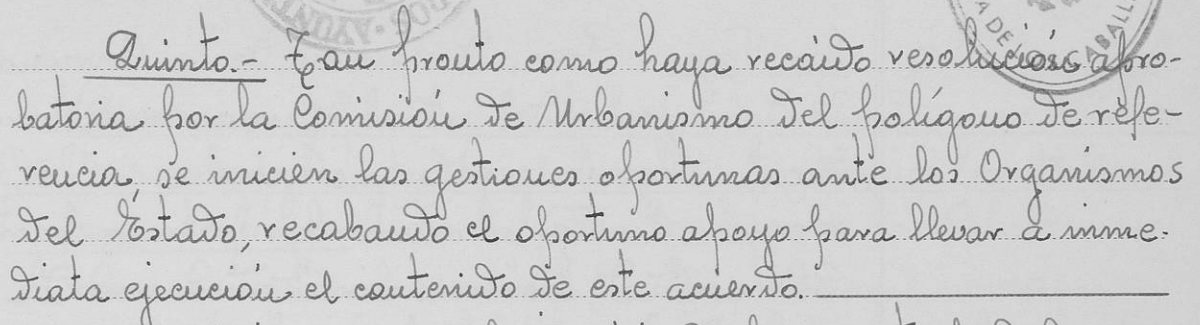 Quinto.- Tan pronto como haya recaído resolución apro-
batoria por la Comisión de Urbanismo del polígono de refe-
rencia, se inicien las gestiones oportunas ante los Organismos
del Estado, recabando el oportuno apoyo para llevar a inme-
diata ejecución el contenido de este acuerdo.